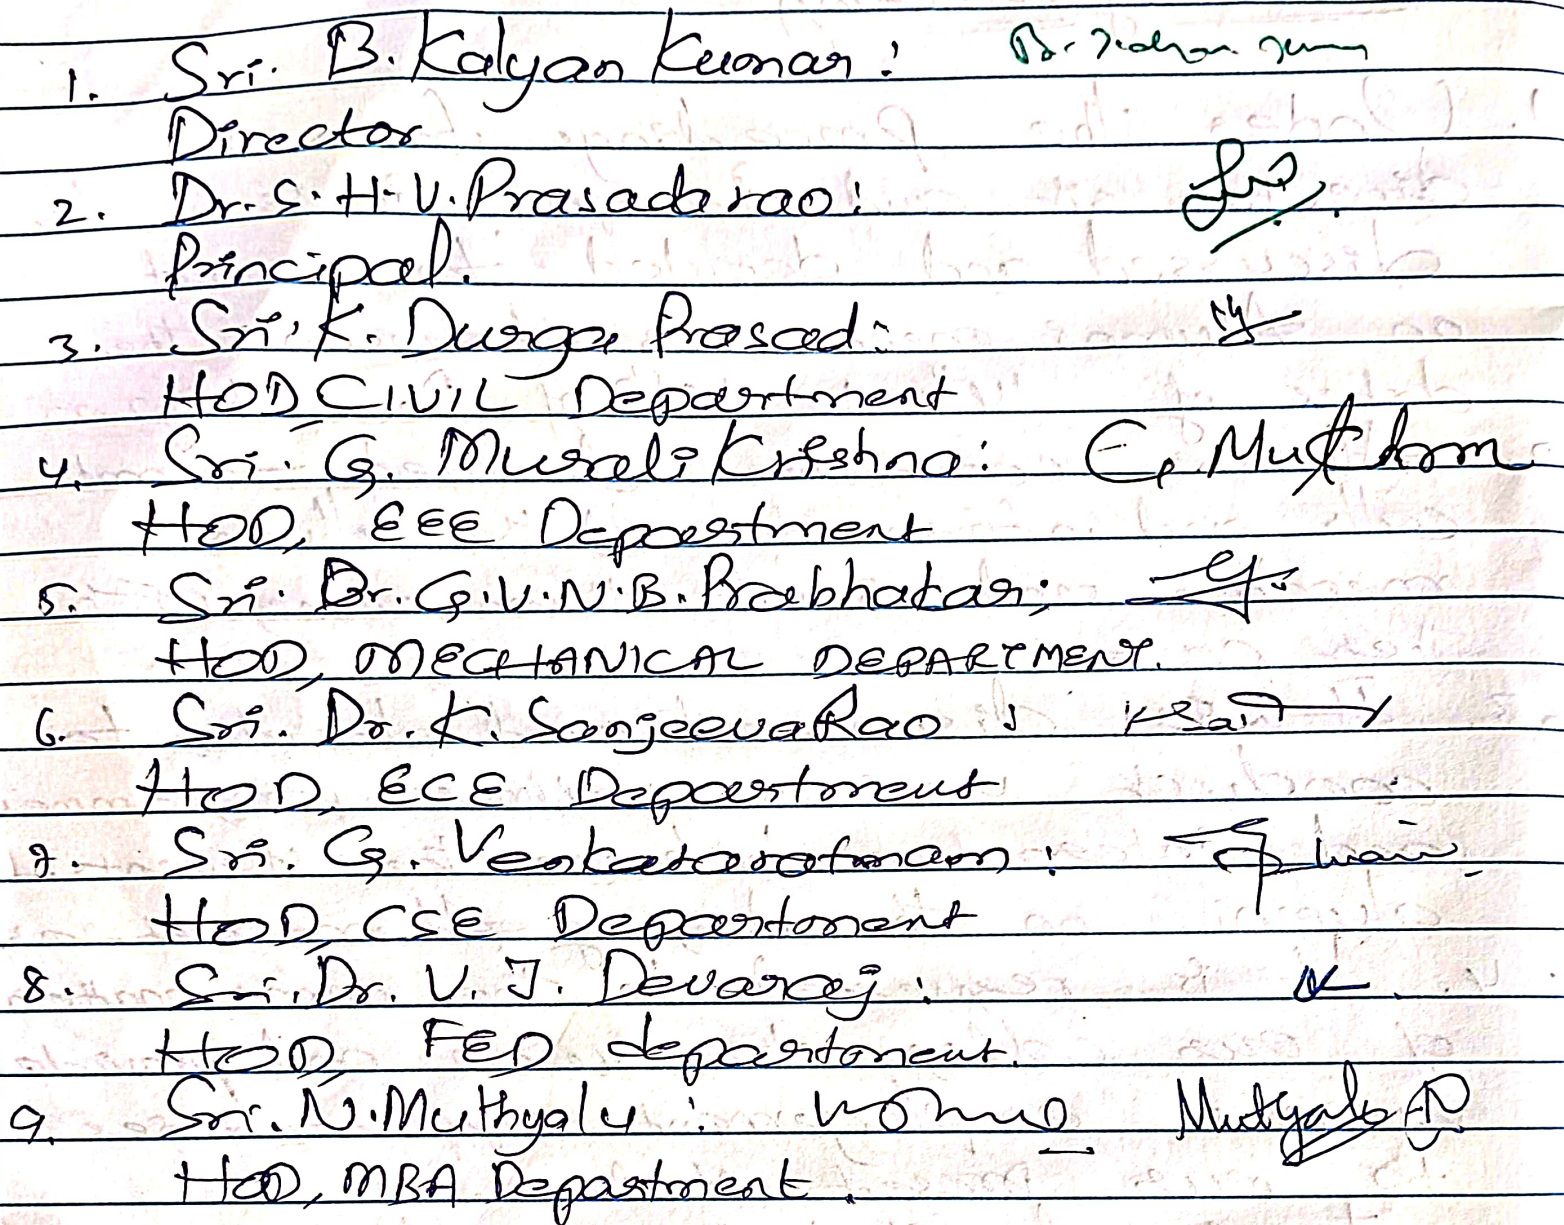 1. Sri. B. Kalyan Kumar :
Director
2. Dr. S. H. V. Prasada rao :
Principal.
3. Sri. K. Durga Prasad :
HOD CIVIL Department
4. Sri. G. Murali Krishna :
HOD, EEE Department
5. Sri. Dr. G.V.N.B. Prabhakar ;
HOD, MECHANICAL DEPARTMENT.
6. Sri. Dr. K. SanjeevaRao :
HOD, ECE Department
7. Sri. G. Venkataratnam :
HOD, CSE Department
8. Sri. Dr. V. J. Devaraj :
HOD, FED department.
9. Sri. N. Muthyalu : Mutyalu
HOD, MBA Department.